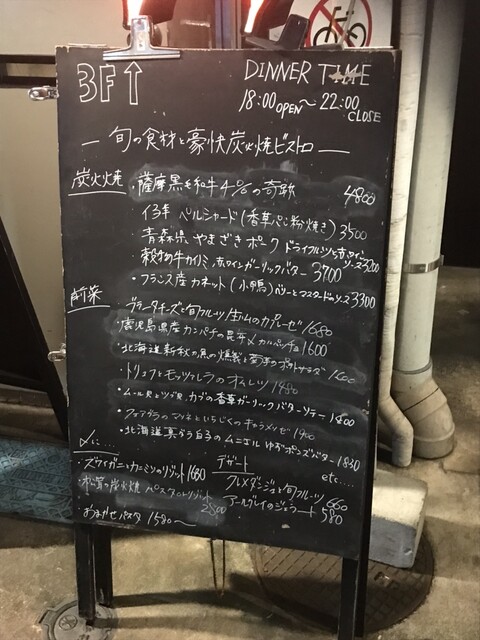 3F↑
DINNER TIME
18:00 OPEN～22:00 CLOSE
― 旬の食材と豪快炭火焼ビストロ ―
炭火焼
・薩摩黒毛和牛 の奇跡 4800
・仔羊 ペルシャード(香草パン粉焼き) 3500
・青森県 やまざきポーク ドライフルーツと赤ワインソース 3200
・穀物牛カイノミ 赤ワインガーリックバター 3700
・フランス産 カネット(小鴨) ベリーとマスタードのソース 3300
前菜
・ブラータチーズと旬フルーツ 生ハムのカプレーゼ 1680
鹿児島県産カンパチの昆布〆カルパッチョ 1600
・北海道新秋刀魚の燻製と のポテトサラダ 1600
・トリュフとモッツァレラのオムレツ 1480
・ムール貝とツブ貝、カブの香草ガーリックバターソテー 1400
・フォアグラのソテーといちじくのキャラメリゼ 1900
・北海道真ダラ白子のムニエル ゆずポンズバター 1830
〆に...
etc....
・ズワイガニとカニミソのリゾット 1680
・松茸の炭火焼 パスタorリゾット 2800
・おまかせパスタ 1580～
デザート
クレメダンジュと旬フルーツ 660
アールグレイのジェラート 580